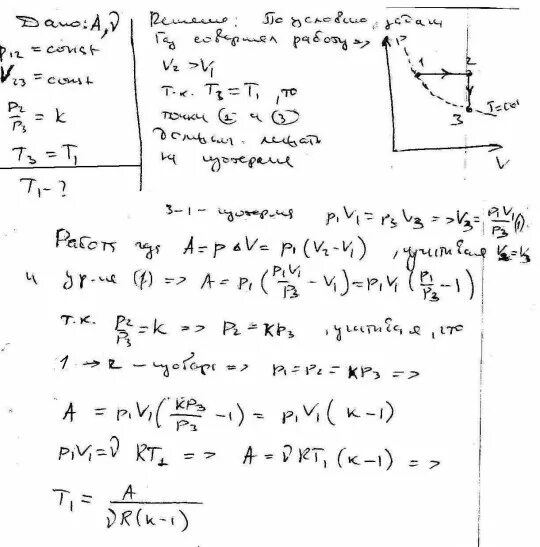 Дано: A, ν
p₁₂ = const
V₂₃ = const
p₂/p₃ = k
T₃ = T₁
T₁ - ?
Решение: По условию задачи
Газ совершал работу =>
V₂ > V₁
т.к. T₃ = T₁, то
точки (1) и (3)
должны лежать
на изотерме
P
1
2
3
T=const
V
3-1 - изотерма p₁V₁ = p₃V₃ => V₃ = p₁V₁/p₃ (1)
Работа газа A = pΔV = p₁(V₂-V₁), учитывая V₂=V₃
и ур-ие (1) => A = p₁(p₁V₁/p₃ - V₁) = p₁V₁(p₁/p₃ - 1)
т.к. p₂/p₃ = k => p₂ = kp₃, учитывая, что
1 → 2 - изобара => p₁ = p₂ = kp₃ =>
A = p₁V₁(kp₃/p₃ - 1) = p₁V₁(k-1)
p₁V₁ = νRT₁ => A = νRT₁(k-1) =>
T₁ = A/νR(k-1)